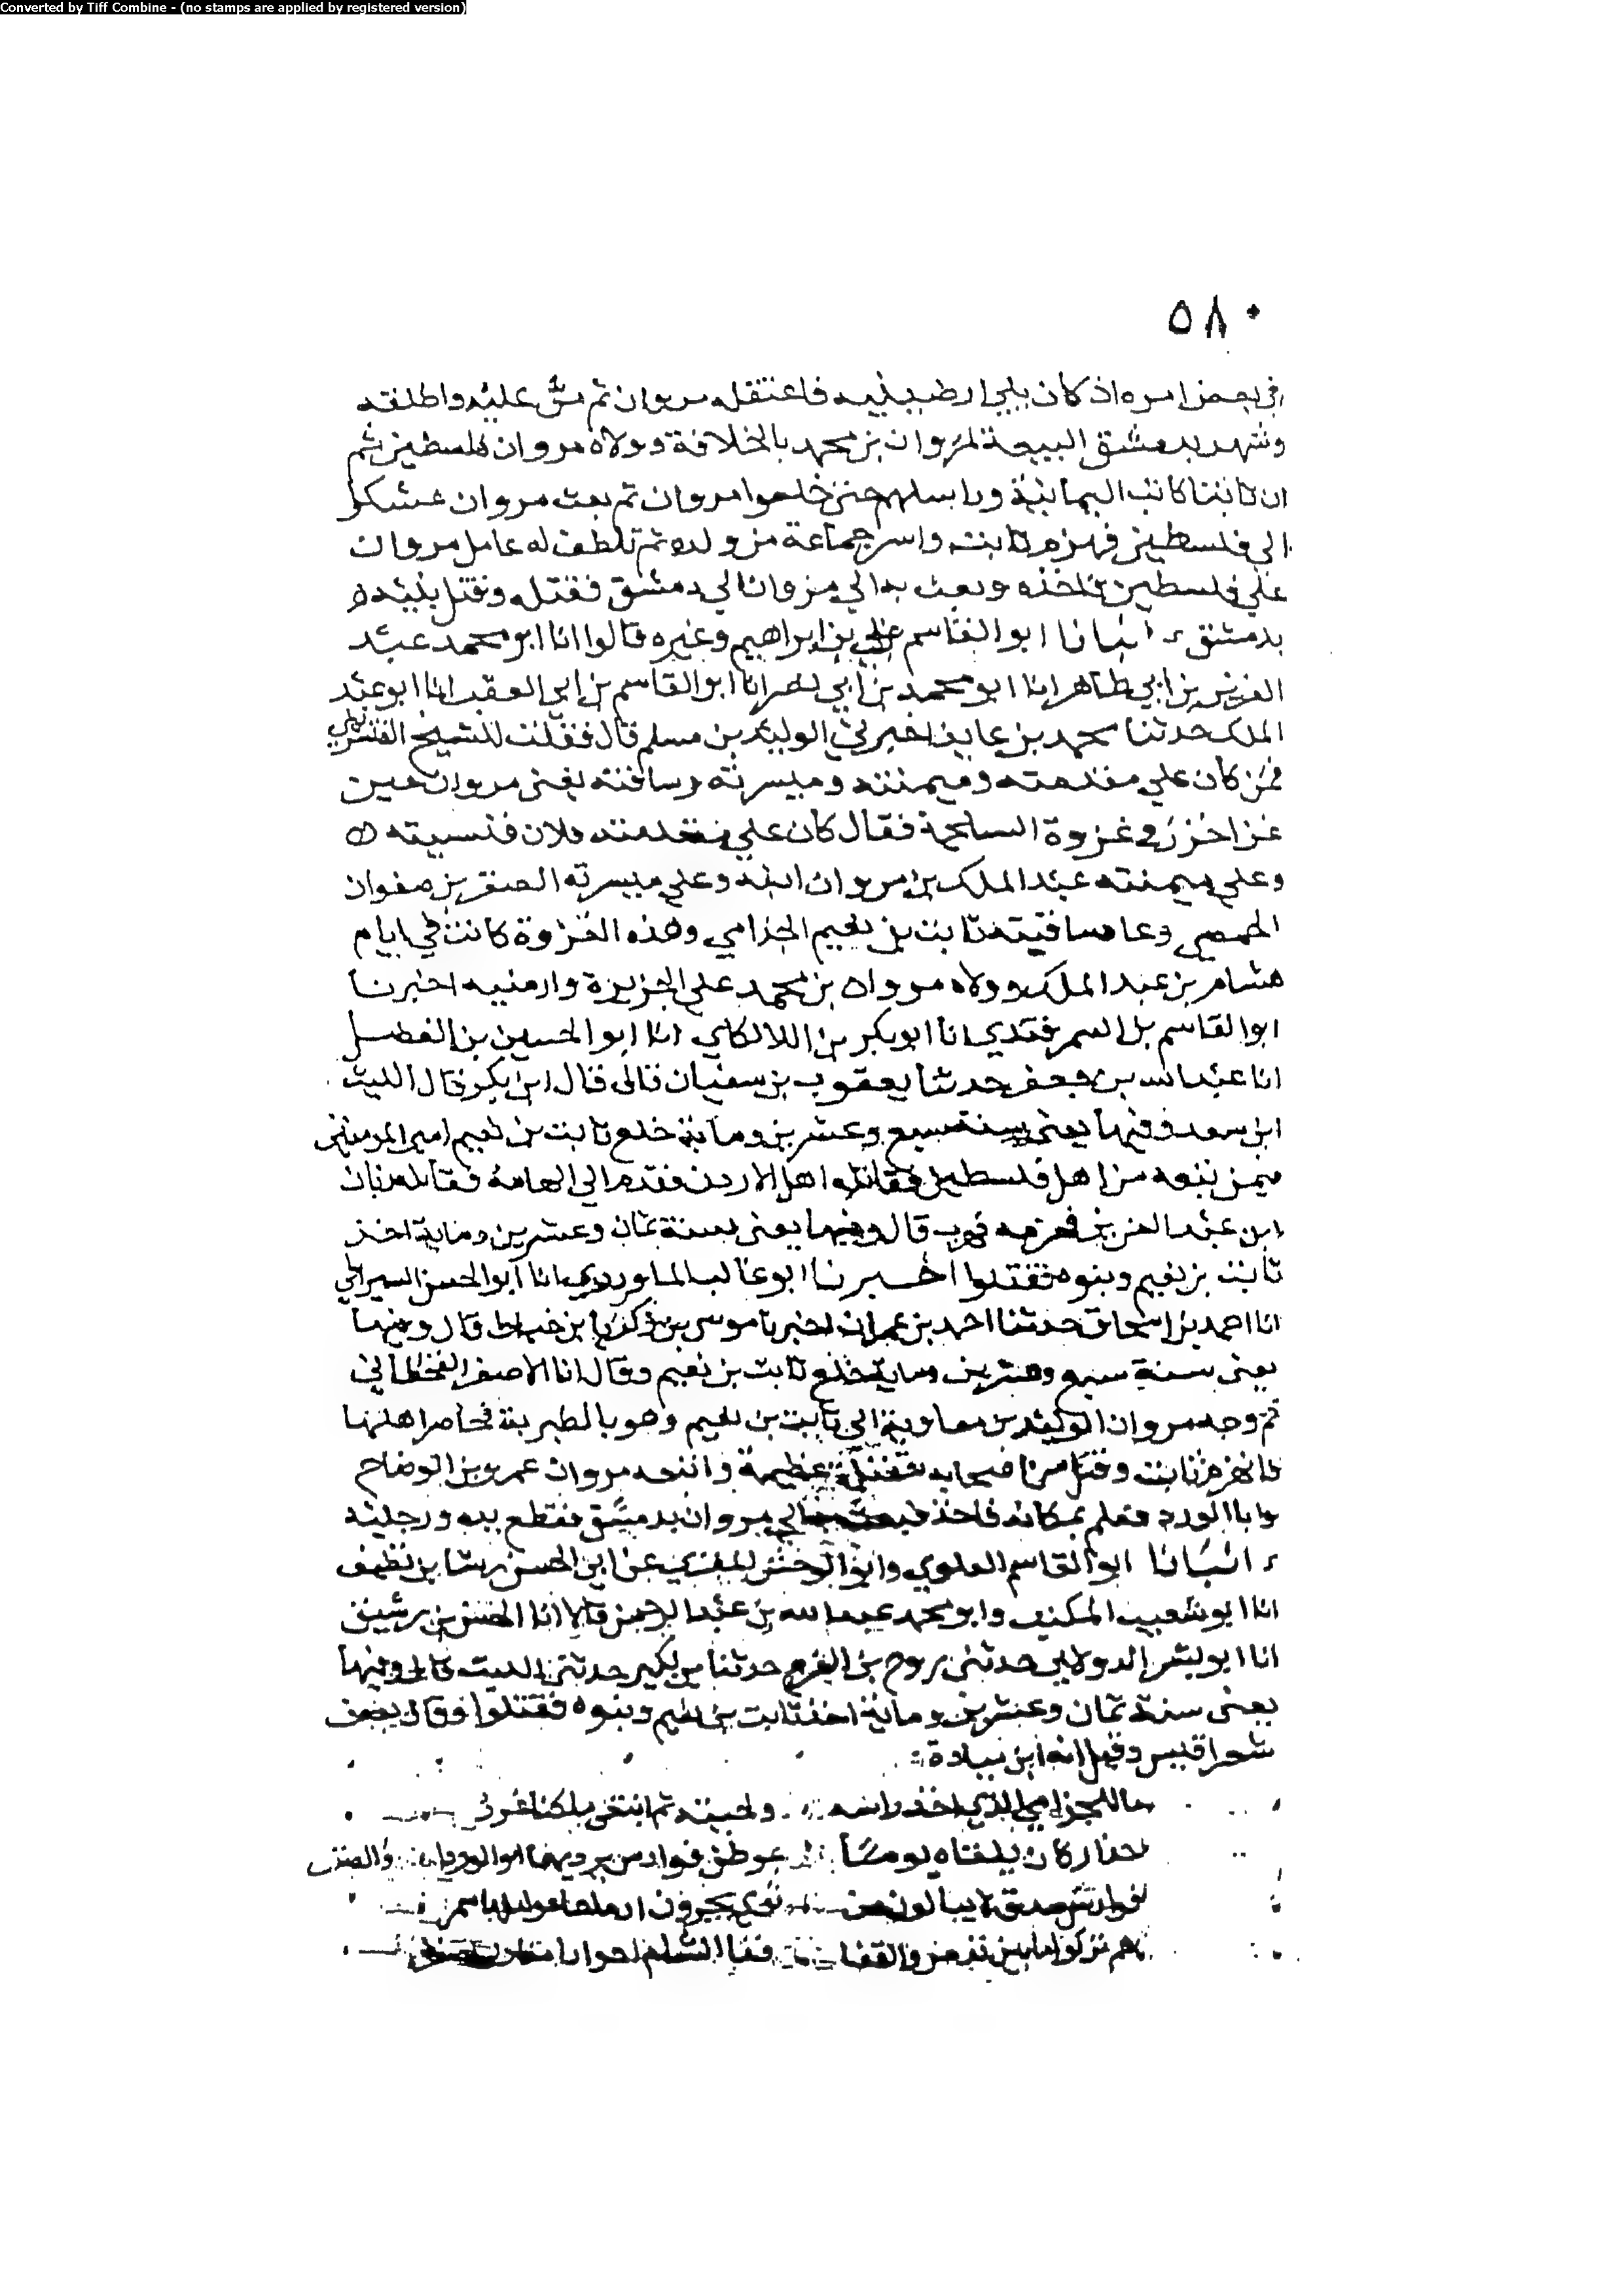 Converted by Tiff Combine - (no stamps are applied by registered version)
٥٨٠
في بعض امره اذ كان يلي ارمينيه فاعتقله مروان ثم منّ عليه واطلقه
وشهد بدمشق البيعة لمروان بن محمد بالخلافة وولاه مروان فلسطين ثم
ان ثابتا كاتب اليمانية وراسلهم حتى خلعوا مروان ثم بعث مروان عسكرا
الى فلسطين فهزم ثابت واسر جماعة من ولده ثم تلطف له عامل مروان
على فلسطين فاخذه وبعث به الى مروان الى دمشق فقتله وقتل بنيه ه
بدمشق انبانا ابو القاسم علي بن ابراهيم وغيره قالوا انا ابو محمد عبد
العزيز بن ابي طاهر انا ابو محمد بن ابي نصر انا ابو القاسم بن ابي العقب انا ابو عبد
الملك حدثنا محمد بن عايذ اخبرني الوليد بن مسلم قال فقلت للشيخ
فمن كان على مقدمته وميمنته وميسرته وساقته يعنى مروان حين
غزا غزوة السايحة فقال كان على مقدمته فلان فنسيته ه
وعلى ميمنته عبد الملك بن مروان ابنه وعلى ميسرته الصقر بن صفوان
الحمصي وعلى ساقيته ثابت بن نعيم الجذامي وهذه الغزوة كانت في ايام
هشام بن عبد الملك وولاه مروان بن محمد على الجزيرة وارمنيه اخبرنا
ابو القاسم بن السمرقندي انا ابو بكر بن اللالكاي انا ابو الحسين بن الفضل
انا عبد الله بن جعفر حدثنا يعقوب بن سفيان قال قال ابن بكير قال الليث
ابن سعد وفيها يعنى سنة سبع وعشرين وماية خلع ثابت بن نعيم امير المومنين
فيمن تبعه من اهل فلسطين فقاتله اهل الاردن فقدم الى
ابن عبد العزيز فهزمه فهرب قال وفيها يعنى سنة ثمان وعشرين وماية اخذ
ثابت بن نعيم وبنوه فقتلوا اخبرنا ابو غالب الماوردي انا ابو الحسن السيرافي
انا احمد بن اسحاق حدثنا احمد بن عمران اخبرنا موسى بن زكريا بن خياط قال وفيها
يعنى سنة سبع وعشرين وماية خلع ثابت بن نعيم وقال انا الاصفر القحطاني
ثم وجه مروان الوليد بن معاوية الى ثابت بن نعيم وهو بالطبرية فحاصر اهلها
فانهزم ثابت وقتل من اصحابه مقتلة عظيمة واتبعه مروان عمرو بن الوضاح
وابا الورد فعلم بمكانه فاخذ فبعث به الى مروان بدمشق فقطع يديه ورجليه
انبانا ابو القاسم العلوي وابو الوحش المقري عن ابي الحسن رشا بن نظيف
انا ابو شعيب المكتب وابو محمد عبد الله بن عبد الرحمن قالا انا الحسن بن رشيق
انا ابو بشر الدولابي حدثني روح بن الفرج حدثنا بن بكير حدثني الليث قال وفيها
يعنى سنة ثمان وعشرين وماية اخذ ثابت بن نعيم وبنوه فقتلوا وقال بعض
شعرا قيس وقيل انه ابن ميادة
ولحيته ثم
كان يلقاه يوما